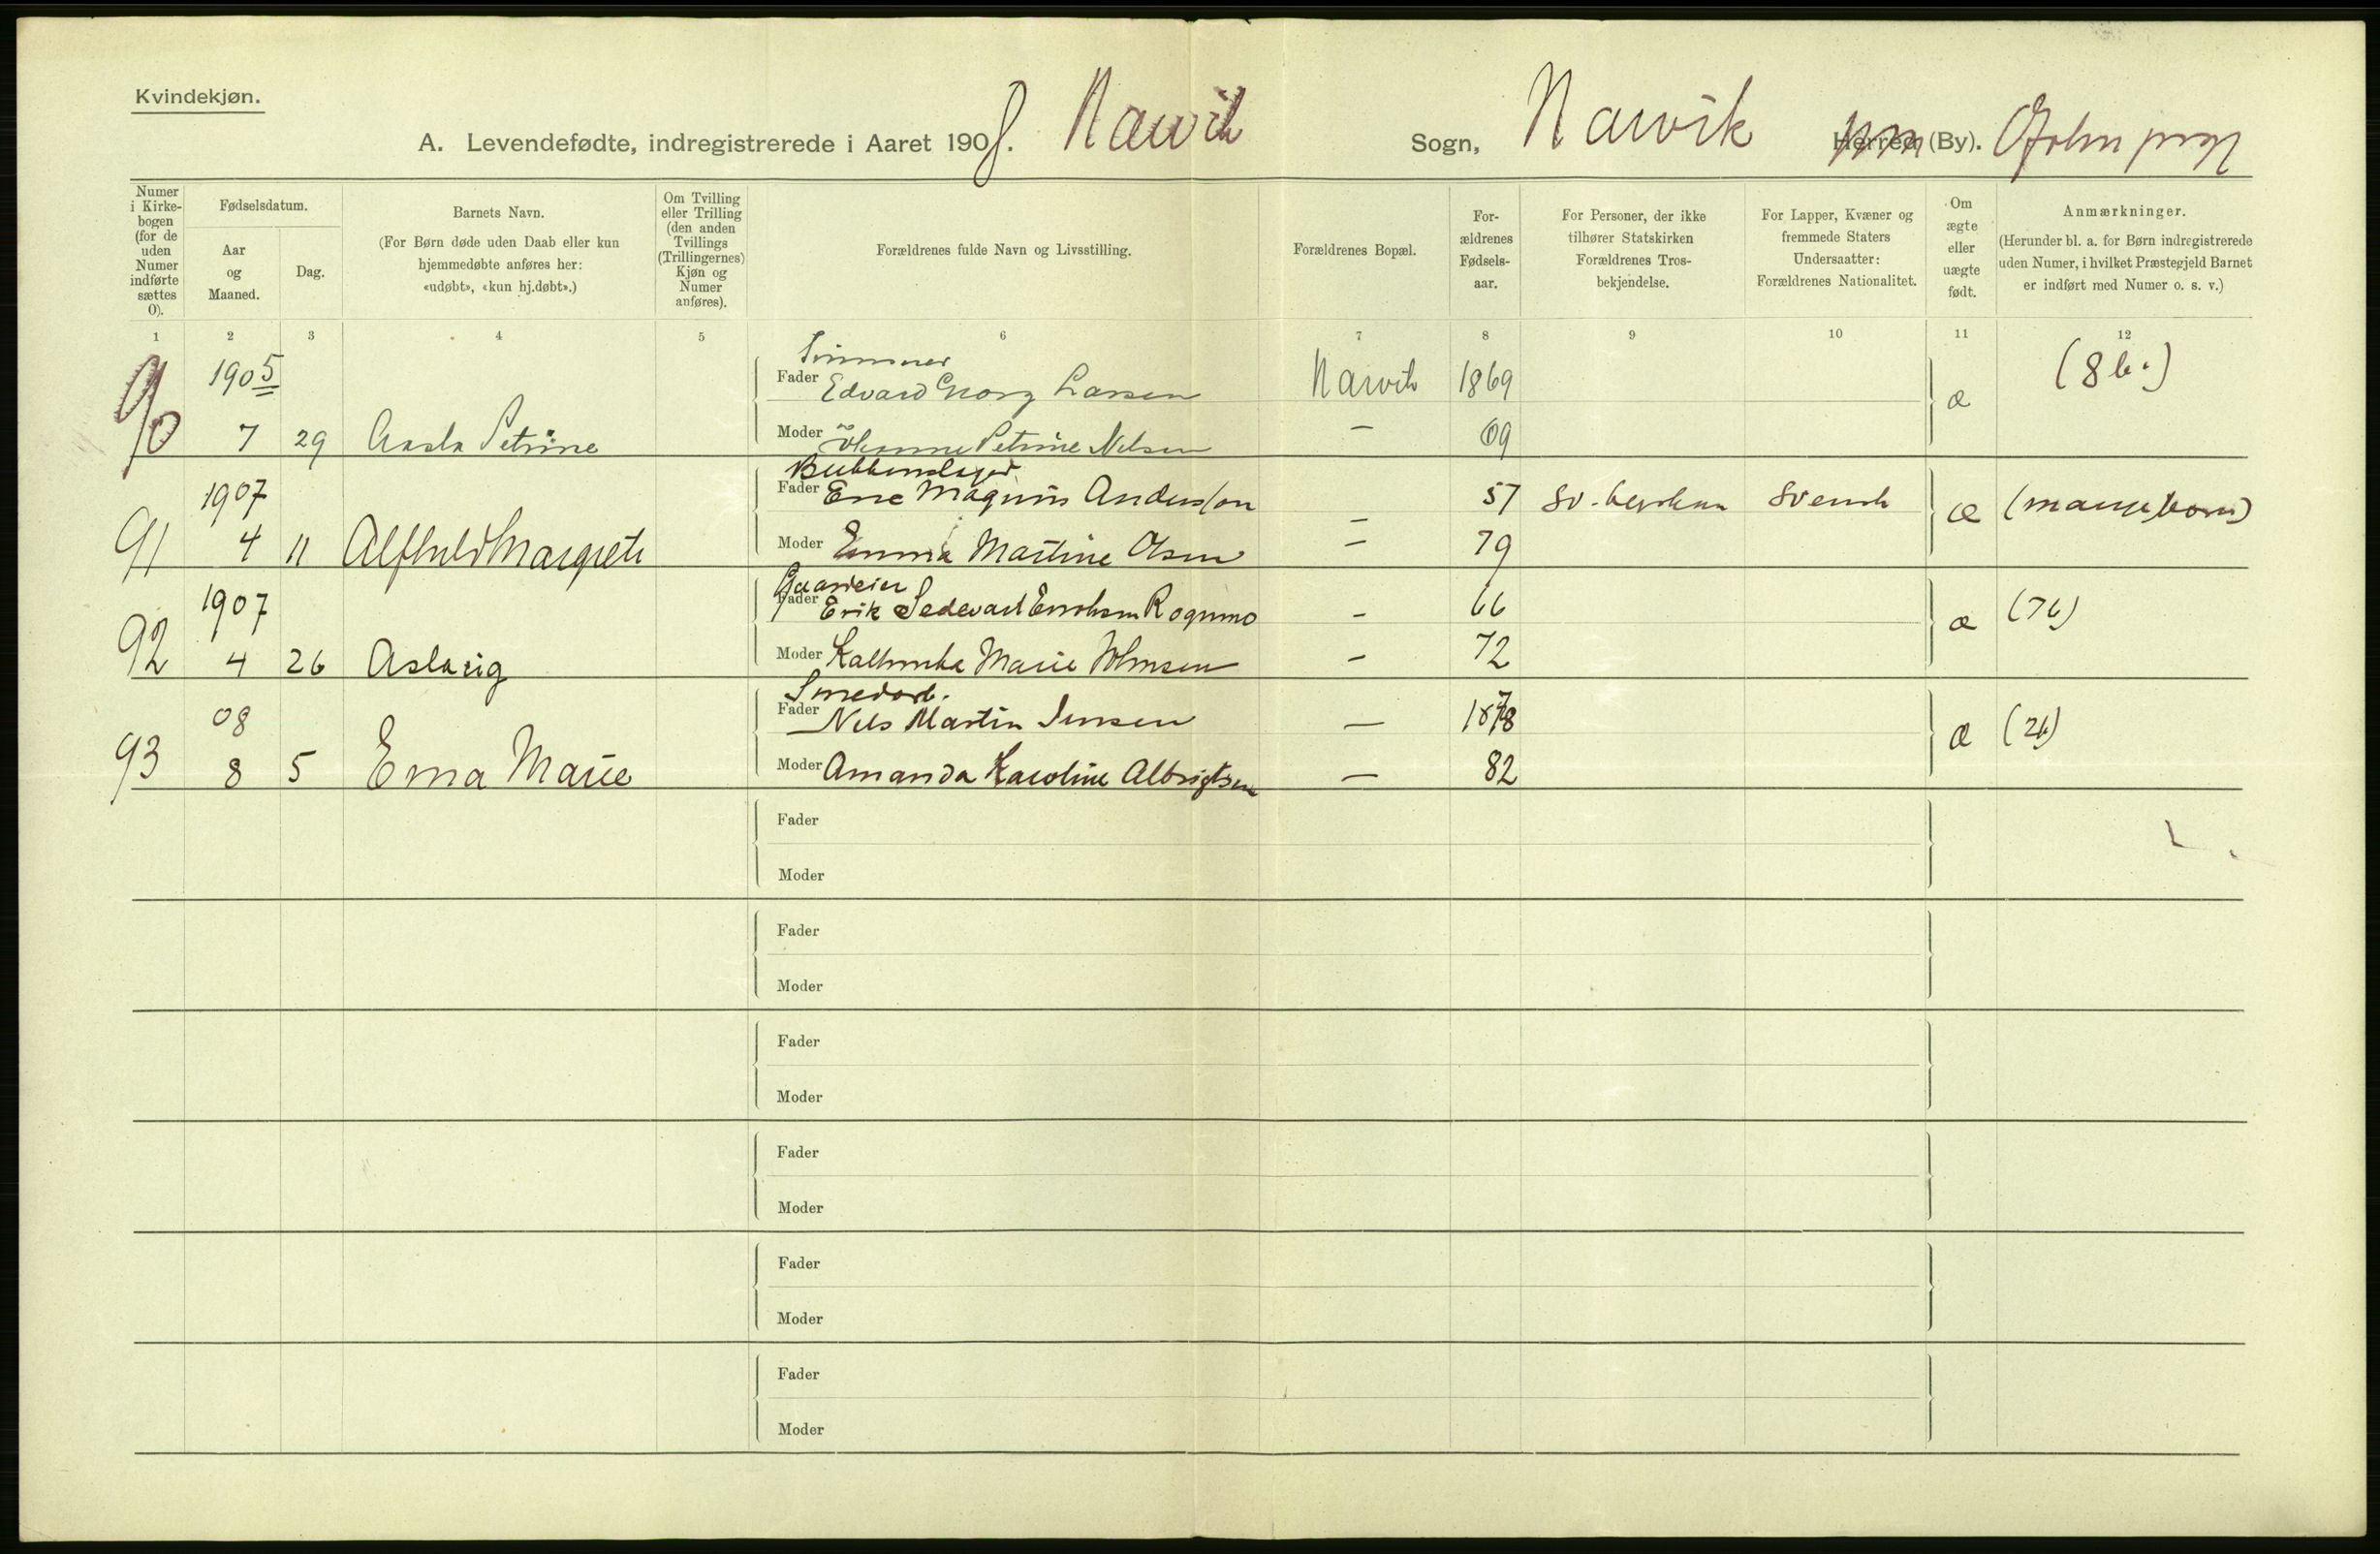 Kvindekjøn.
A. Levendefødte, indregistrerede i Aaret 1908. Narvik Sogn, Narvik Herred (By).
Numer i Kirke-bogen (for de uden Numer indførte sættes 0).
Fødselsdatum.
Aar og Maaned.
Dag.
Barnets Navn.
(For Børn døde uden Daab eller kun hjemmedøbte anføres her: «udøbt», «kun hj.døbt».)
Om Tvilling eller Trilling (den anden Tvillings (Trillingernes) Kjøn og Numer anføres).
Forældrenes fulde Navn og Livsstilling.
Forældrenes Bopæl.
For-ældrenes Fødsels-aar.
For Personer, der ikke tilhører Statskirken Forældrenes Tros-bekjendelse.
For Lapper, Kvæner og fremmede Staters Undersaatter: Forældrenes Nationalitet.
Om ægte eller uægte født.
Anmærkninger.
(Herunder bl. a. for Børn indregistrerede uden Numer, i hvilket Præstegjeld Barnet er indført med Numer o. s. v.)
1 2 3 4 5 6 7 8 9 10 11 12
1905 (8 b.)
Fader Edvard Georg Larsen Narvik 1869 æ
90 7 29 Aasla Petrine Moder Johanne Petrine Nelsen — 69
1907 Fader Magnus Andersson — 57 Svensk æ
91 4 11 Alfhild Margrete Moder Emma Martine Olsen — 79
Gaardeier
1907 Fader Erik — 66 æ (7b)
92 4 26 Aslaug Moder Marie Johnsen — 72
Smedarb.
08 Fader Nils Martin Jensen — 1878 æ (2b)
93 8 5 Erna Marie Moder Amanda Karoline Albrigtsen — 82
Fader
Moder
Fader
Moder
Fader
Moder
Fader
Moder
Fader
Moder
Fader
Moder